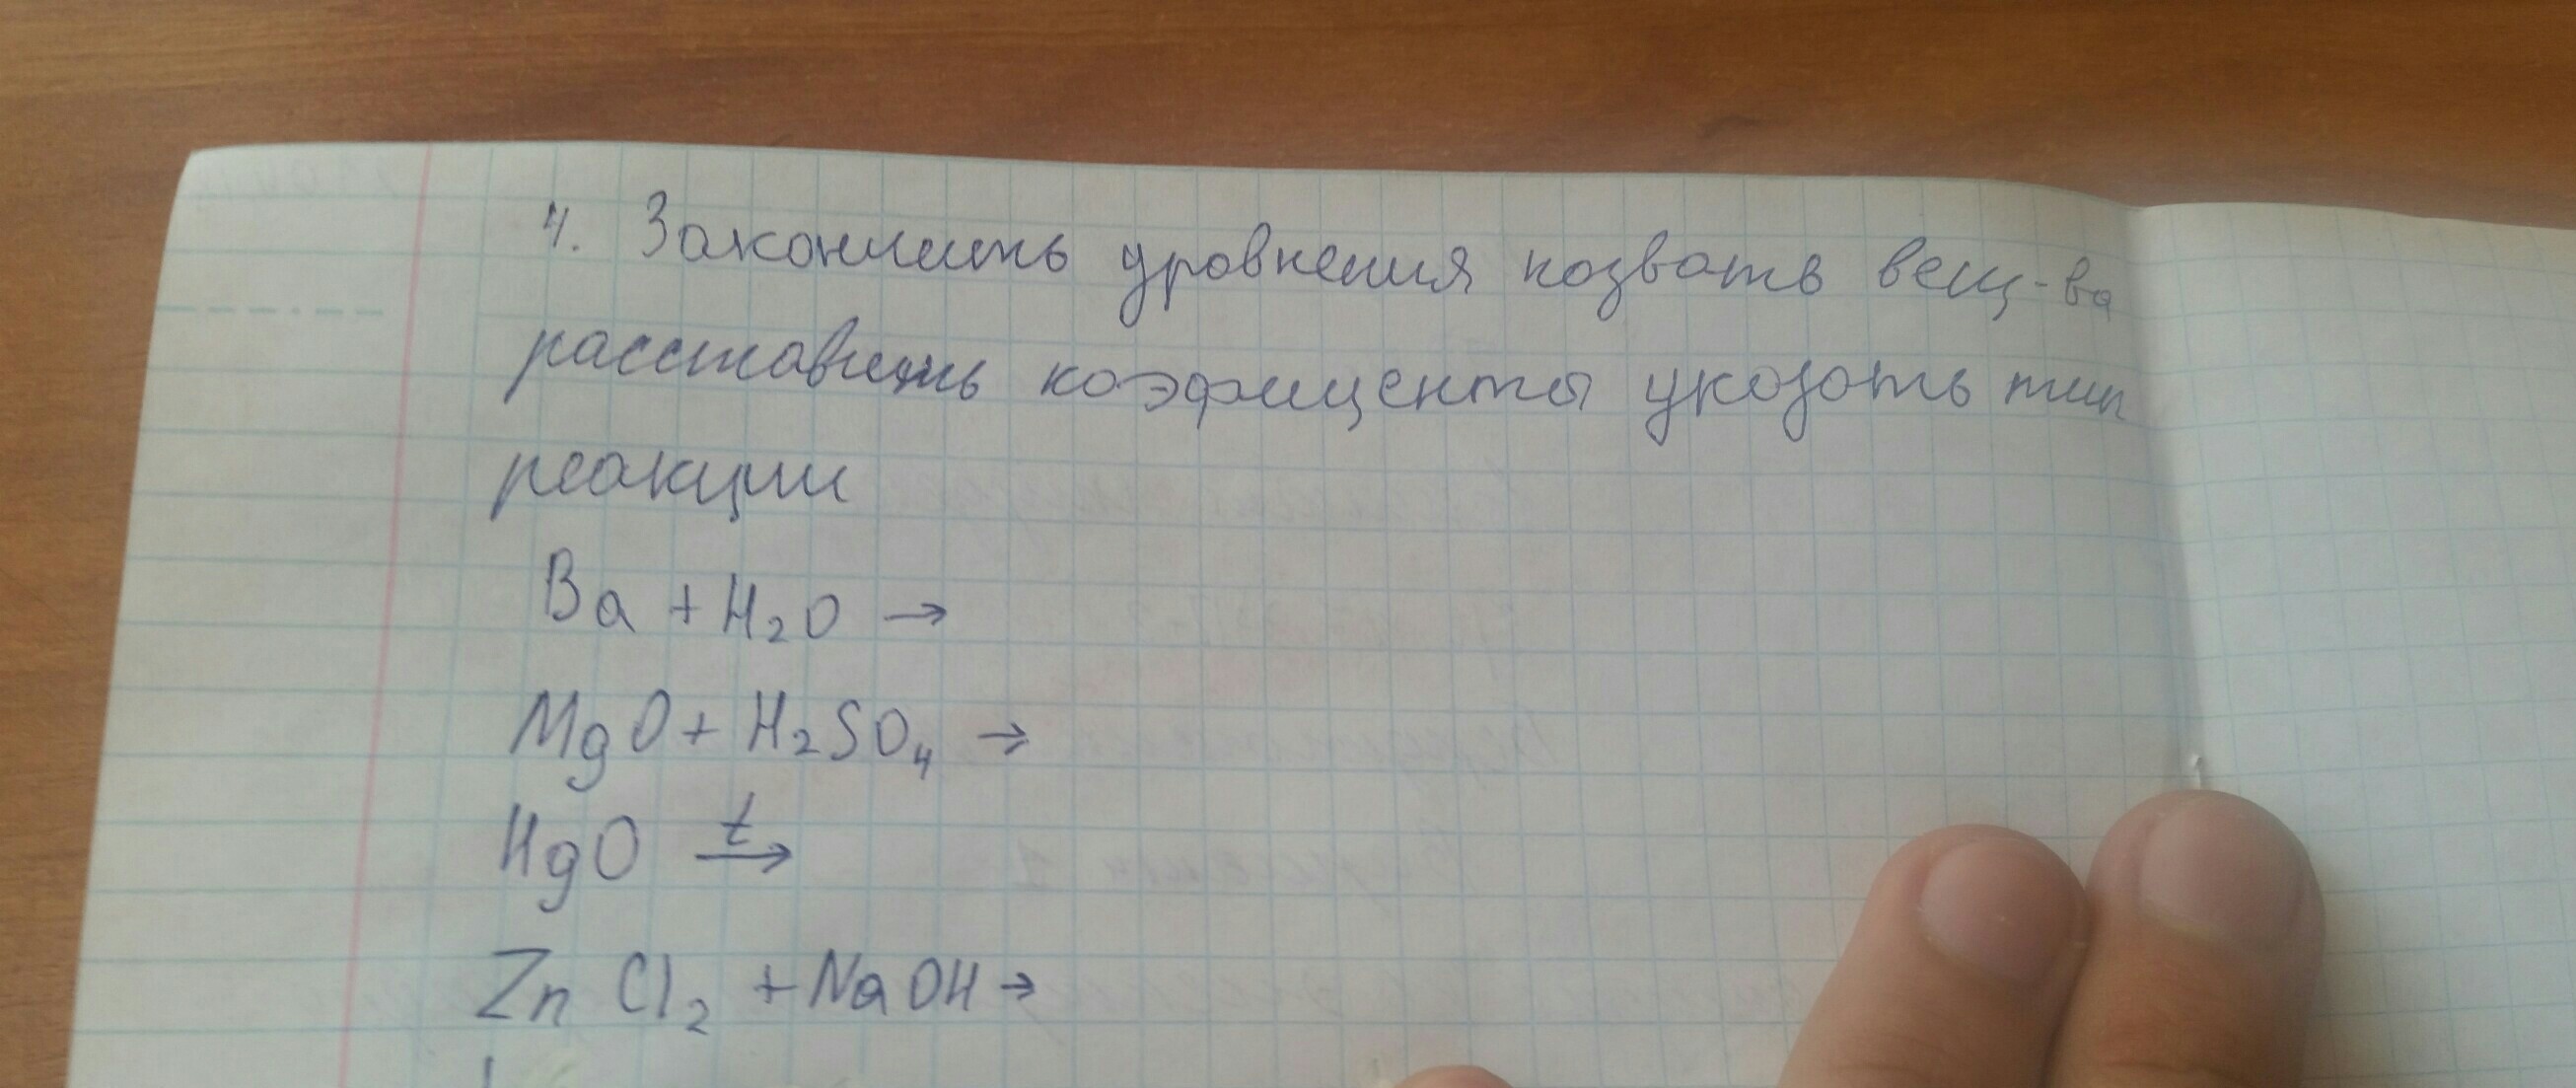 4. Закончить уровнения нозвать вещ-ва
расставить коэфиценты укозоть тип
реакции
Ba + H₂O →
MgO + H₂SO₄ →
HgO t→
Zn Cl₂ + NaOH →